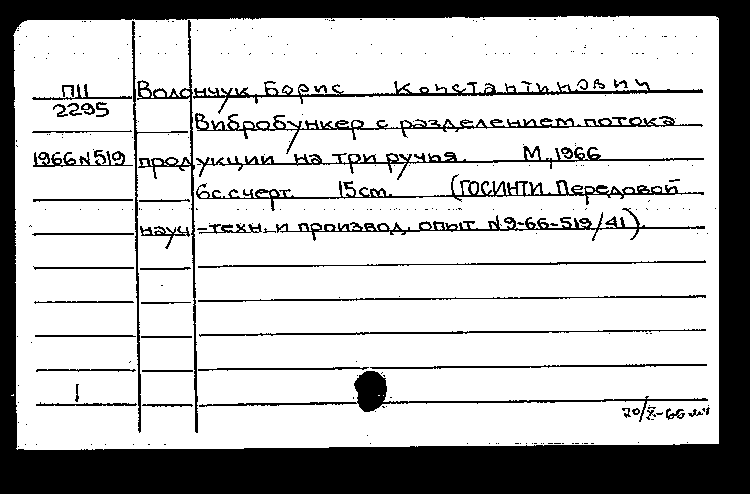 П11 Волончук, Борис Константинович
2295
Вибробункер с разделением потока
1966 N519 продукции на три ручья. М., 1966
6с. с черт. 15 cm. (ГОСИНТИ. Передовой
науч.-техн. и производ. опыт. N9-66-519/41).
1
20/X-66